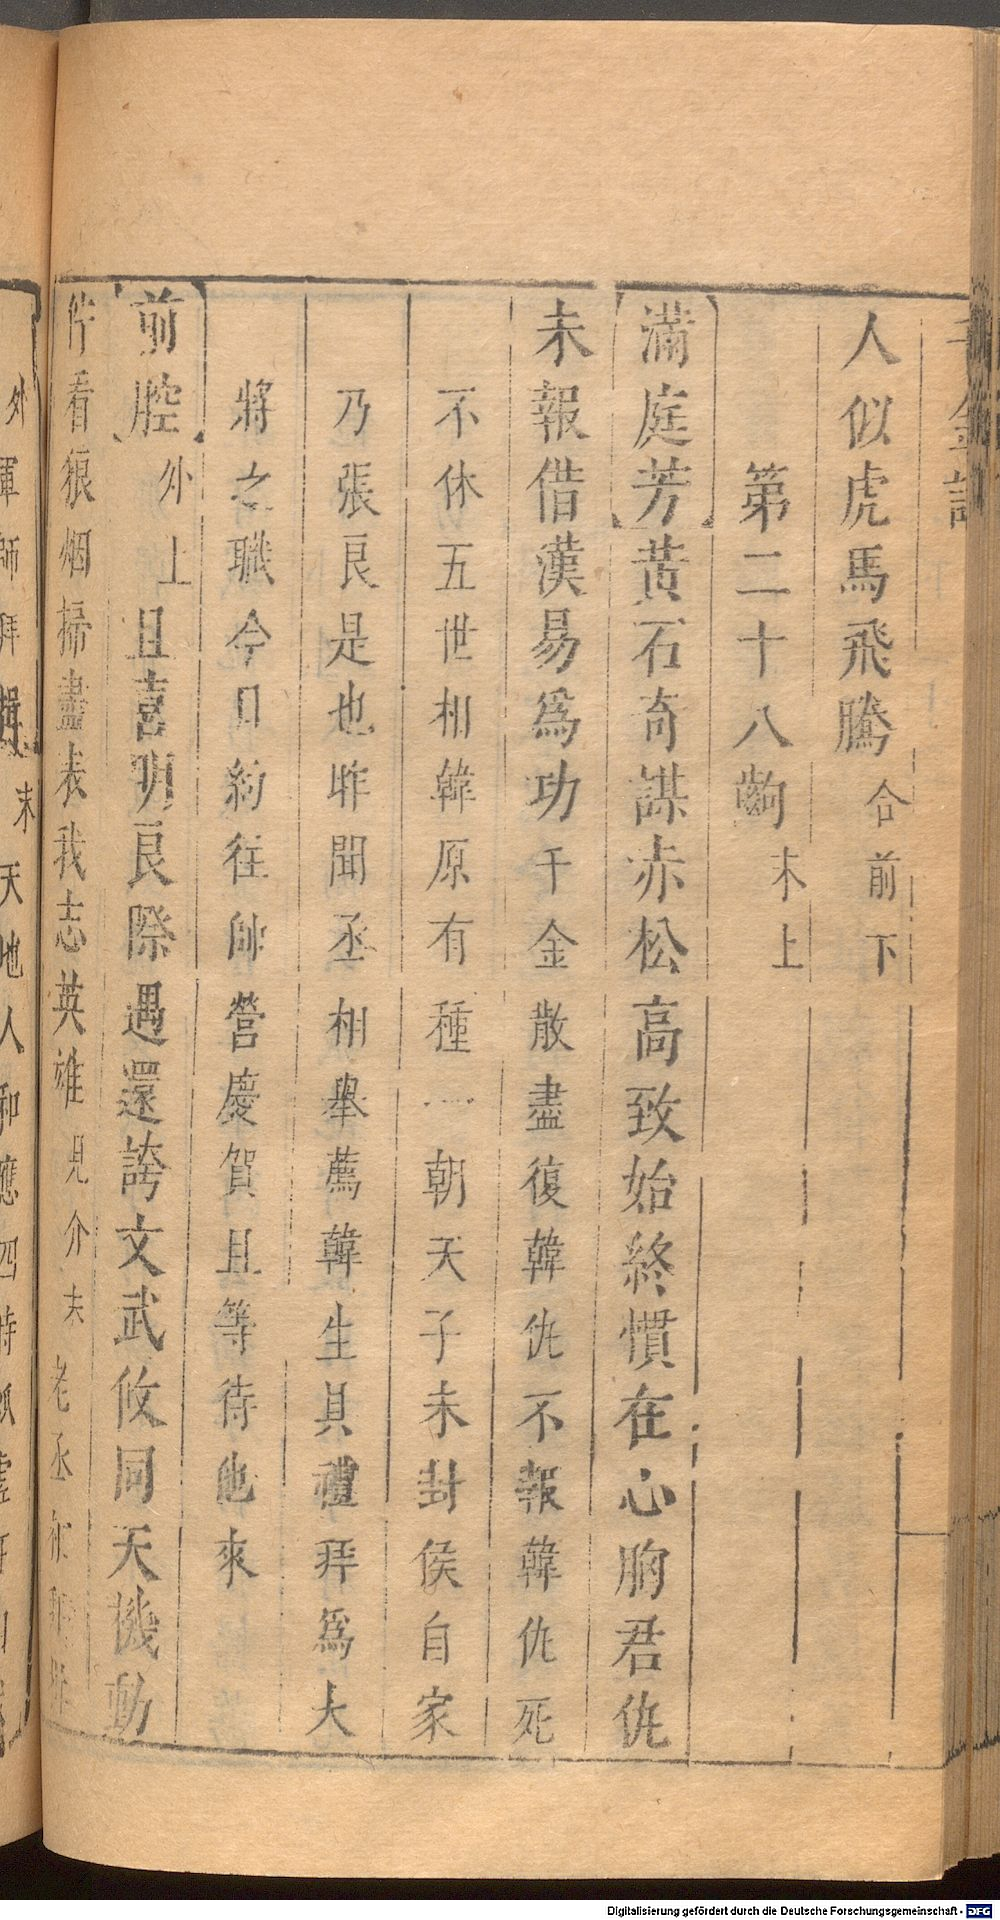 千金記
人似虎馬飛騰合前下
第二十八齣末上
滿庭芳黃石奇謀赤松高致始終慣在心胸君仇
未報借漢易爲功千金散盡復韓仇不報韓仇死
不休五世相韓原有種一朝天子未封侯自家
乃張良是也昨聞丞相舉薦韓生具禮拜爲大
將之職今日約往帥營慶賀且等待他來
前腔外上且喜明良際遇還誇文武攸同天機動
佇看狼烟掃盡表我志英雄見介夫老丞相
外軍師拜揖末天地人和應四時孤虛
Digitalisierung gefördert durch die Deutsche Forschungsgemeinschaft - DFG